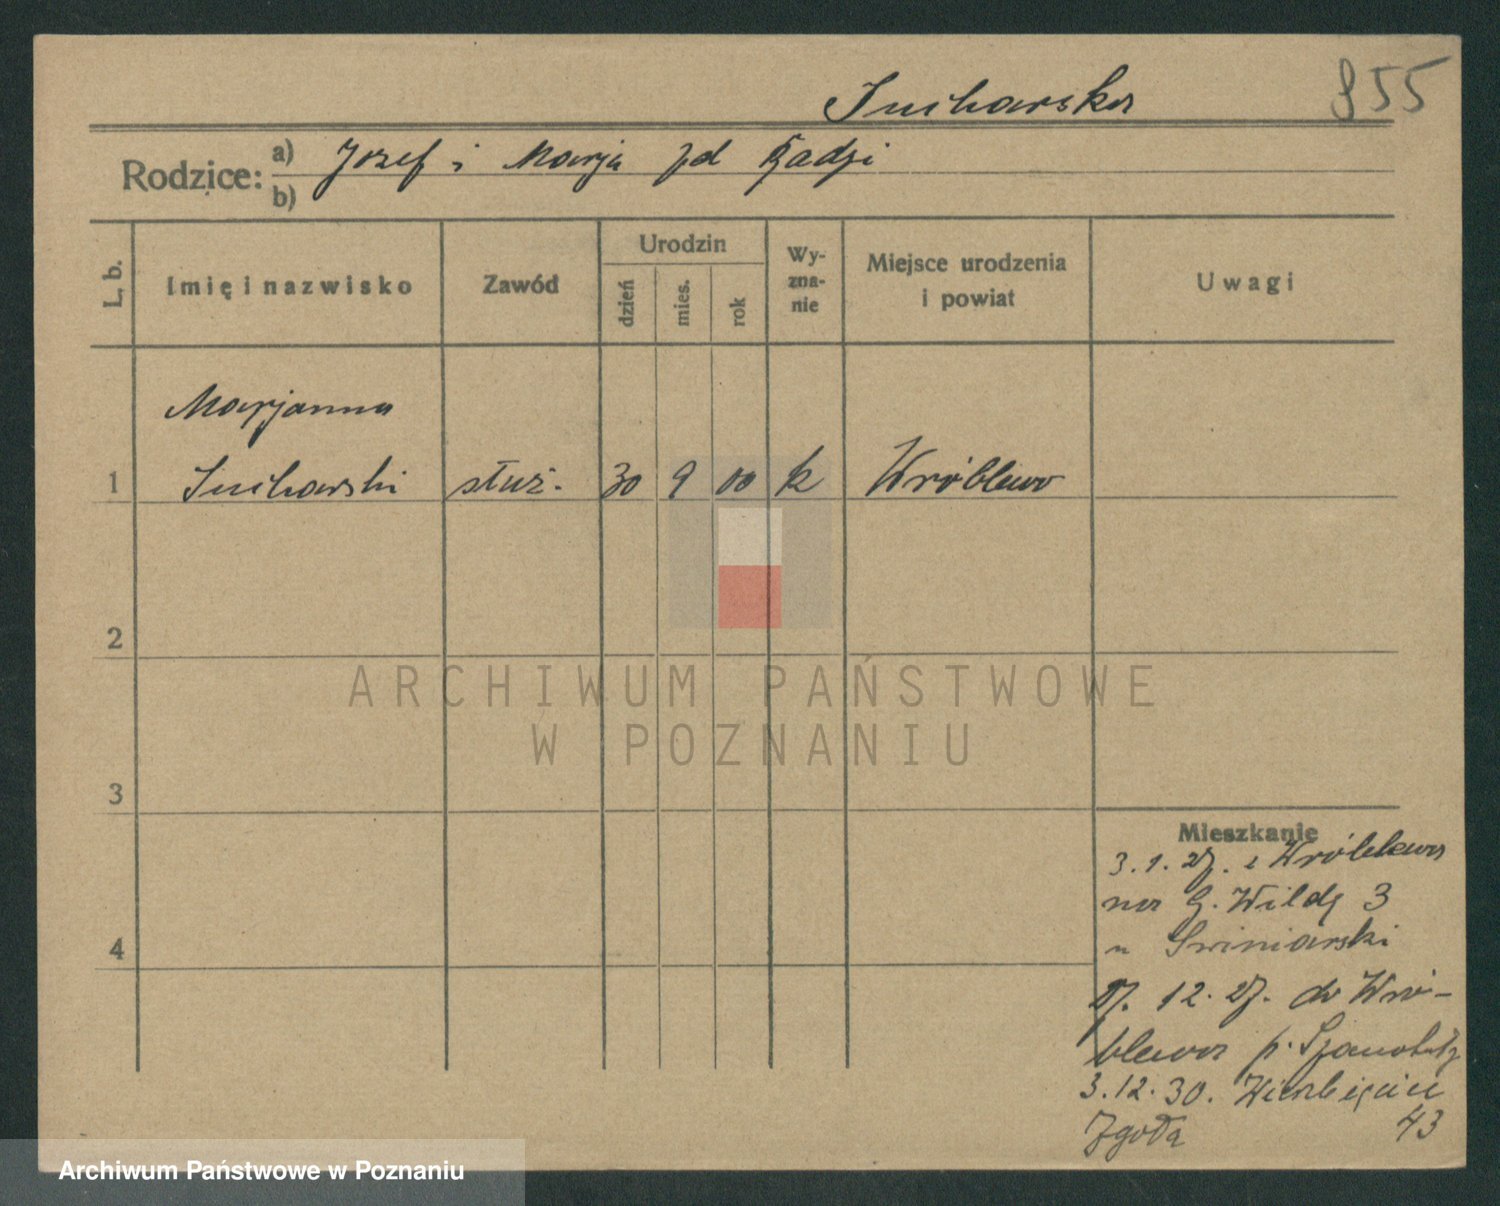 Sucharska
955
Rodzice: a) Józef i Marja zd Kądzi
b)
L. b.
Imię i nazwisko
Zawód
Urodzin
dzień
mies.
rok
Wy-
zna-
nie
Miejsce urodzenia
i powiat
Uwagi
Marjanna
1 Sucharski służ. 30 9 00 k Wróblewo
2
3
4
Mieszkanie
3.1.27. z Wróblewa
na G. Wildę 3
u Swiniarski
27. 12. 27. do Wró-
blewa p. Szamotuły
3.12.30. Wierzbięcice
43
Zgoła
ARCHIWUM PAŃSTWOWE
W POZNANIU
Archiwum Państwowe w Poznaniu